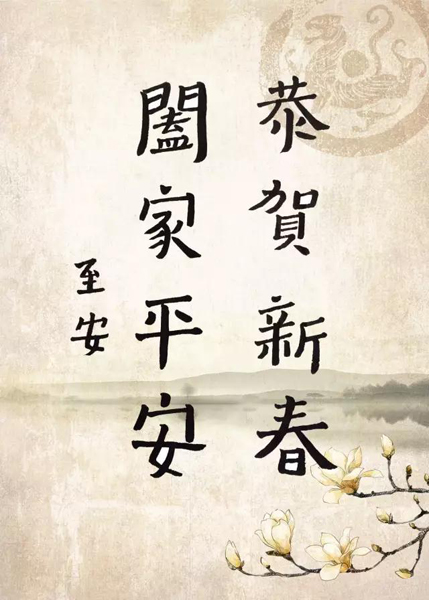 恭賀新春
闔家平安
至安